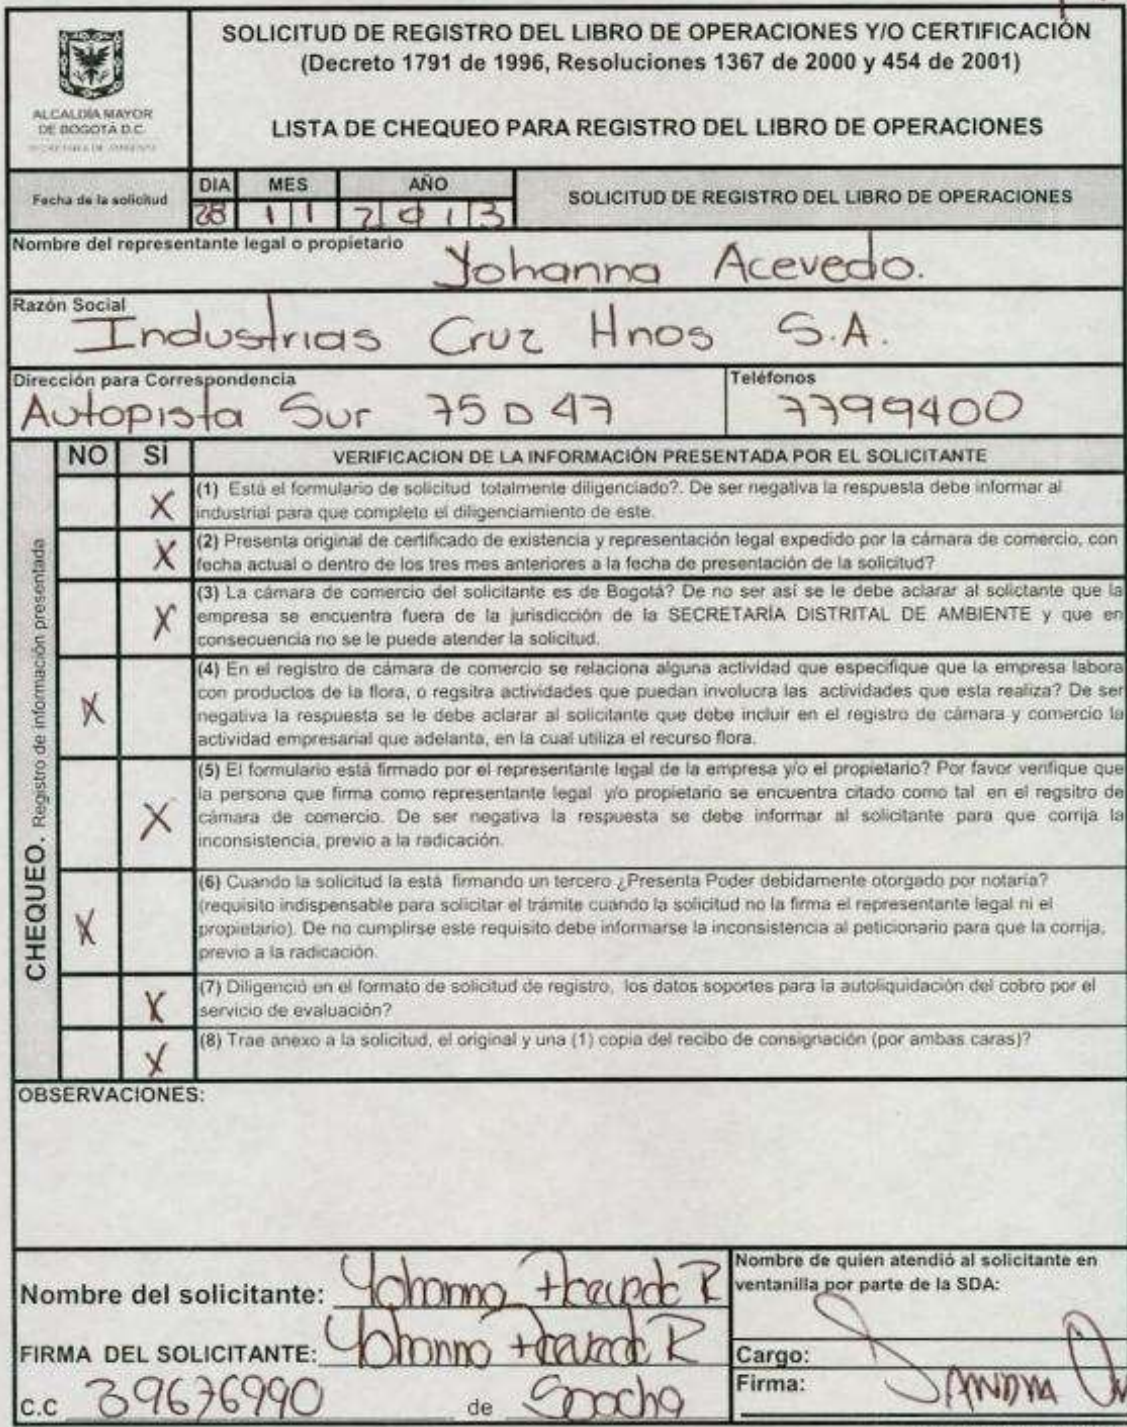 ALCALDÍA MAYOR
DE BOGOTÁ D.C.
SOLICITUD DE REGISTRO DEL LIBRO DE OPERACIONES Y/O CERTIFICACIÓN
(Decreto 1791 de 1996, Resoluciones 1367 de 2000 y 454 de 2001)
LISTA DE CHEQUEO PARA REGISTRO DEL LIBRO DE OPERACIONES
Fecha de la solicitud
DIA MES AÑO
28 11 2013
SOLICITUD DE REGISTRO DEL LIBRO DE OPERACIONES
Nombre del representante legal o propietario
Yohanna Acevedo.
Razón Social
Industrias Cruz Hnos S.A.
Dirección para Correspondencia
Autopista Sur 75 D 47
Teléfonos
7799400
CHEQUEO. Registro de información presentada
NO SÍ VERIFICACION DE LA INFORMACIÓN PRESENTADA POR EL SOLICITANTE
X (1) Está el formulario de solicitud totalmente diligenciado?. De ser negativa la respuesta debe informar al
industrial para que complete el diligenciamiento de este.
X (2) Presenta original de certificado de existencia y representación legal expedido por la cámara de comercio, con
fecha actual o dentro de los tres mes anteriores a la fecha de presentación de la solicitud?
X (3) La cámara de comercio del solicitante es de Bogotá? De no ser así se le debe aclarar al solictante que la
empresa se encuentra fuera de la jurisdicción de la SECRETARÍA DISTRITAL DE AMBIENTE y que en
consecuencia no se le puede atender la solicitud.
X (4) En el registro de cámara de comercio se relaciona alguna actividad que especifique que la empresa labora
con productos de la flora, o regsitra actividades que puedan involucra las actividades que esta realiza? De ser
negativa la respuesta se le debe aclarar al solicitante que debe incluir en el registro de cámara y comercio la
actividad empresarial que adelanta, en la cual utiliza el recurso flora.
X (5) El formulario está firmado por el representante legal de la empresa y/o el propietario? Por favor verifique que
la persona que firma como representante legal y/o propietario se encuentra citado como tal en el regsitro de
cámara de comercio. De ser negativa la respuesta se debe informar al solicitante para que corrija la
inconsistencia, previo a la radicación.
X (6) Cuando la solicitud la está firmando un tercero ¿Presenta Poder debidamente otorgado por notaría?
(requisito indispensable para solicitar el trámite cuando la solicitud no la firma el representante legal ni el
propietario). De no cumplirse este requisito debe informarse la inconsistencia al peticionario para que la corrija,
previo a la radicación.
X (7) Diligenció en el formato de solicitud de registro, los datos soportes para la autoliquidación del cobro por el
servicio de evaluación?
X (8) Trae anexo a la solicitud, el original y una (1) copia del recibo de consignación (por ambas caras)?
OBSERVACIONES:
Nombre del solicitante: Yohanna Acevedo R
FIRMA DEL SOLICITANTE: Yohanna Acevedo R
C.C 39676990 de Soacha
Nombre de quien atendió al solicitante en
ventanilla por parte de la SDA:
Cargo:
Firma: SANDRA